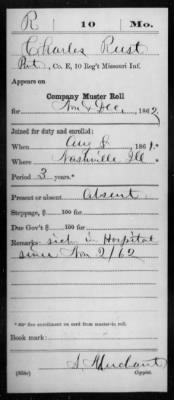 R | 10 | Mo.
Charles Rust
Pvt, Co. E, 10 Reg't Missouri Inf.
Appears on
Company Muster Roll
for Nov & Dec, 1862
Joined for duty and enrolled:
When Aug 8, 1861.*
Where Nashville Ill
Period 3 years.*
Present or absent Absent
Stoppage, $ 100 for
Due Gov't $ 100 for
Remarks: sick in Hospital
since Nov 2/62
* See enrollment on card from muster-in roll.
Book mark:
A Merchant
(858c) Copyist.